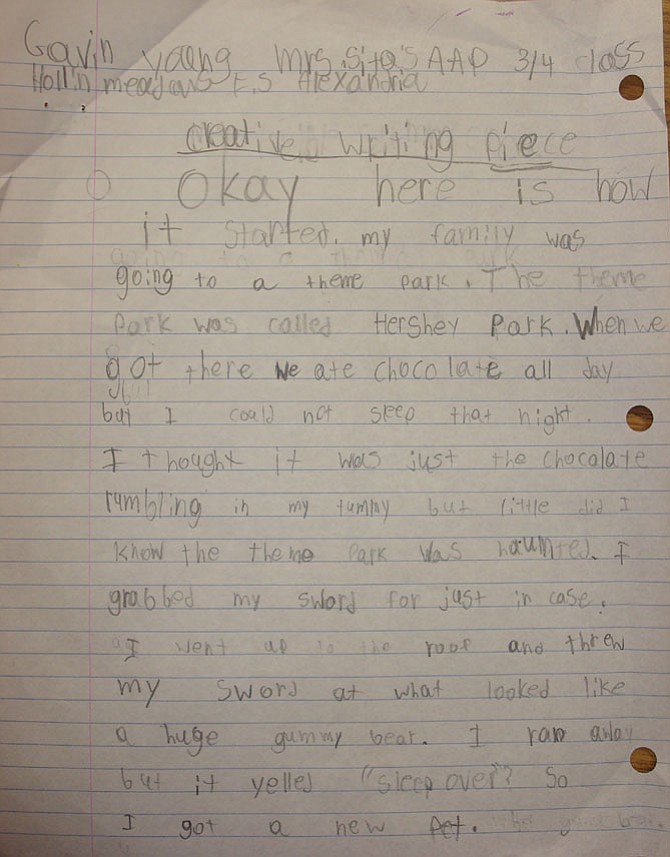 Gavin young Mrs. Sita's AAP 3/4 class
Hollin meadows E.S Alexandria
creative writing piece
Okay here is how
it started. my family was
going to a theme park. The theme
Park was called Hershey Park. When we
got there we ate chocolate all day
but I could not sleep that night.
I thought it was just the chocalate
rumbling in my tummy but little did I
know the theme Park was haunted. I
grabbed my sword for just in case.
I went up to the roof and threw
my sword at what looked like
a huge gummy bear. I ran away
but it yelled "sleep over"? So
I got a new pet.